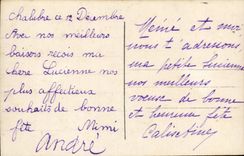 Chalabre le 12 Decembre
Avec nos meilleurs
baisers reçois ma
chere Lucienne nos
plus affectueux
souhaits de bonne
fête Mimi
André
Mémé et moi
nous t adressons
ma petite Lucienne
nos meilleurs
voeux de bonne
et heureuse fête